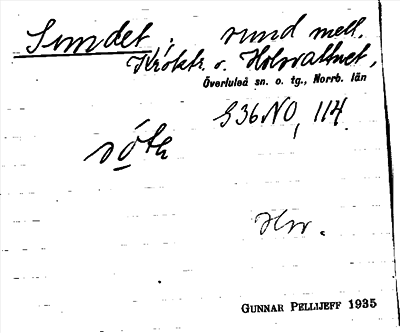 Sundet; sund mell.
Kröktr. o. Holsvattnet,
Överluleå sn. o. tg., Norrb. län
S36NO, 114.
Hvr.
GUNNAR PELLIJEFF 1935